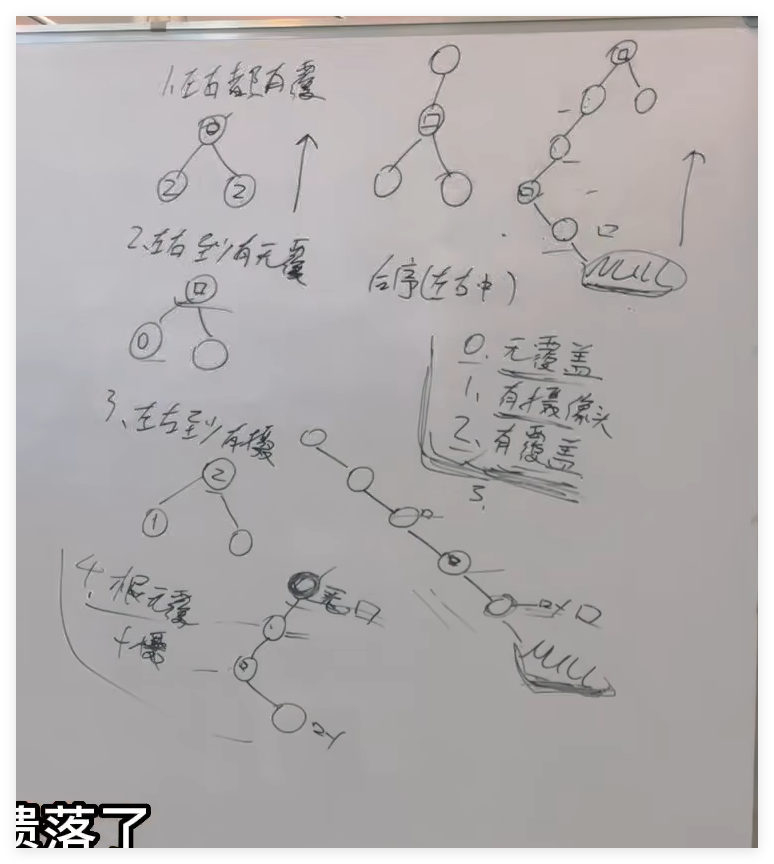 1.左右都有覆
0
2
2
2.左右至少有无覆
0
NULL
后序(左右中)
0.无覆盖
1.有摄像头
2.有覆盖
3.
3.左右至少有摄
2
1
4.根无覆
+摄
NULL
溃落了